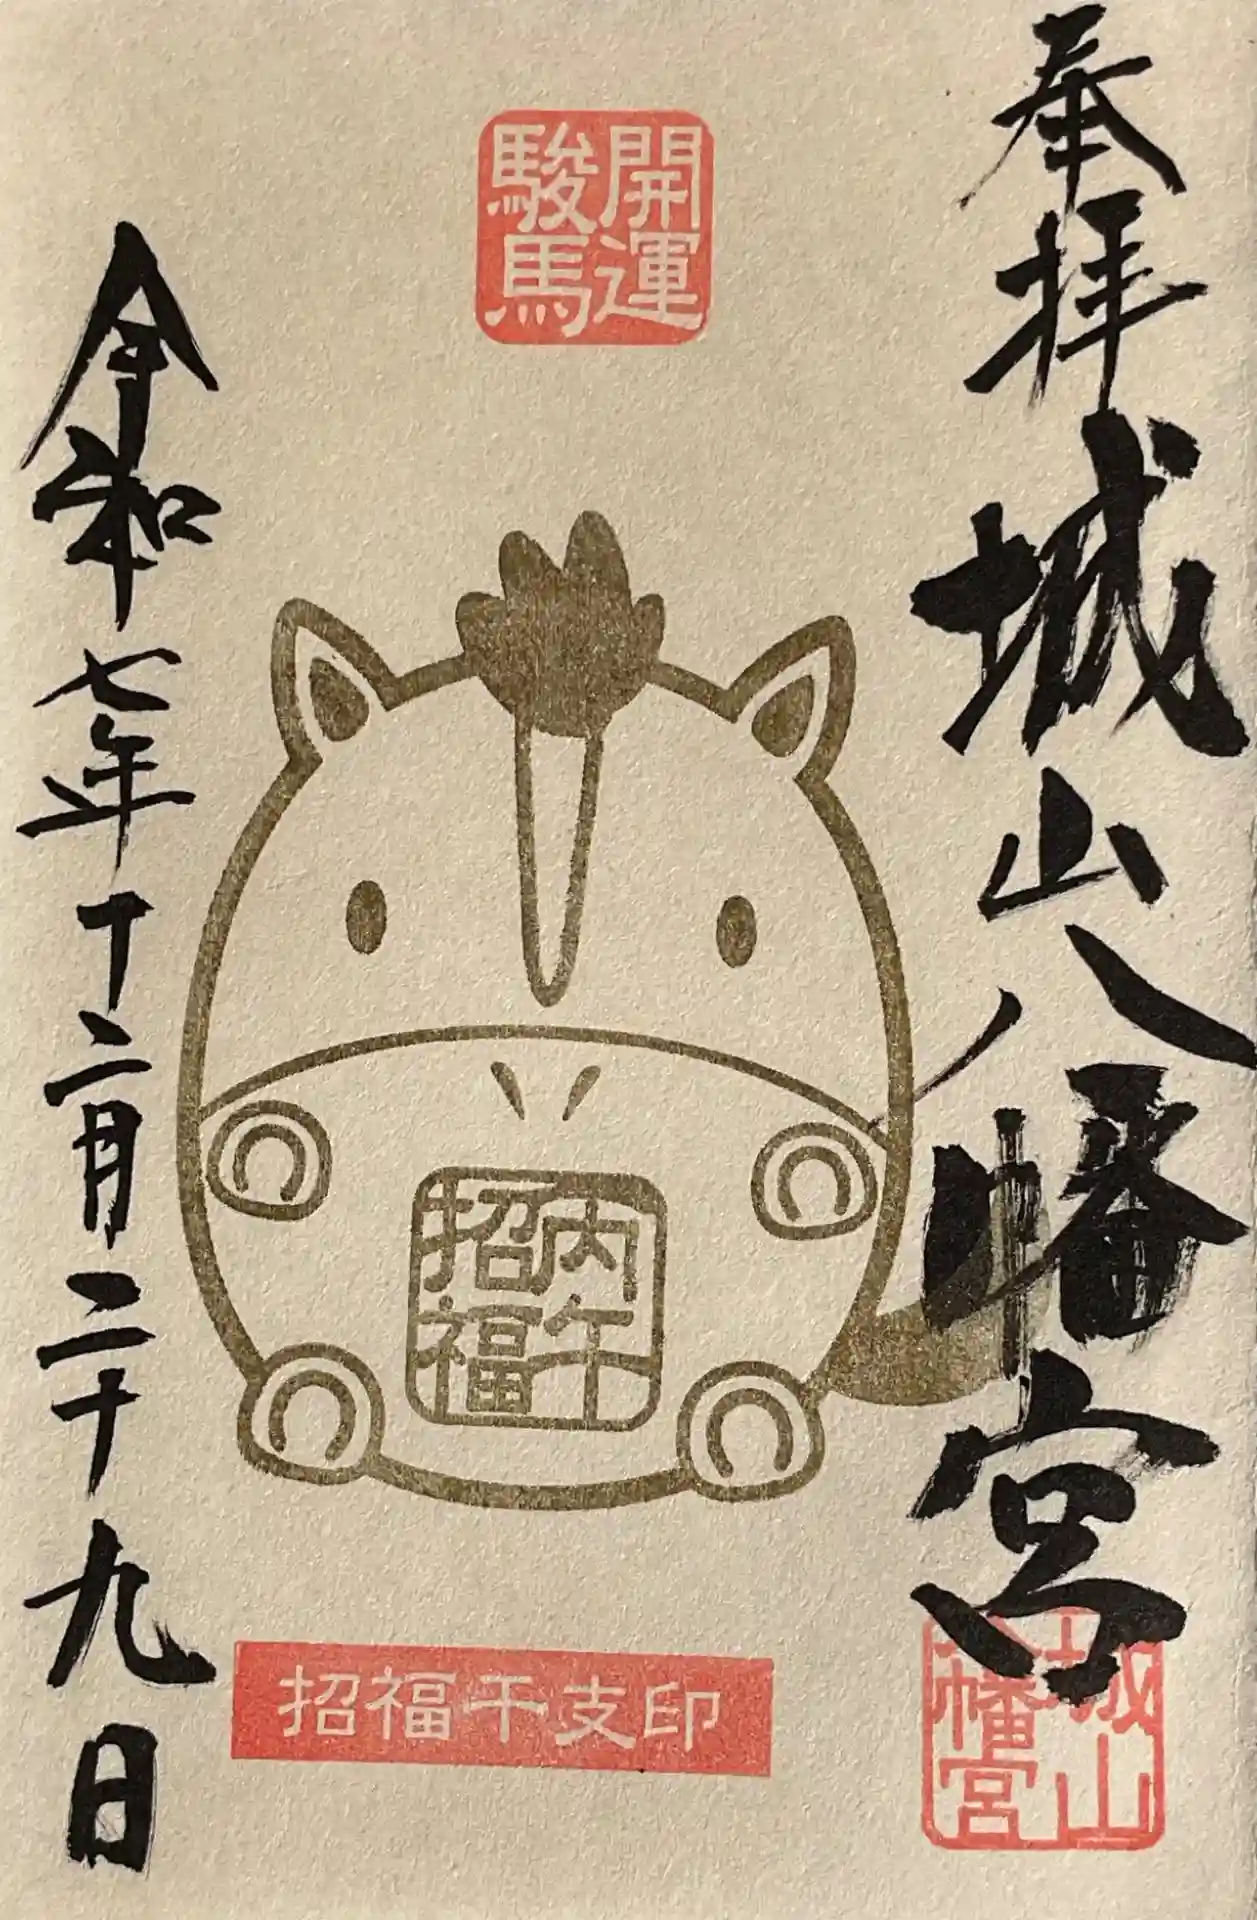 奉拝
城山八幡宮
城山
八幡宮
開運
駿馬
丙午
招福
招福干支印
令和七年十二月二十九日